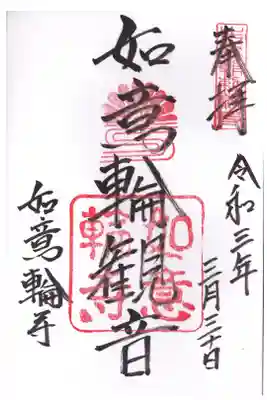 奉拝
令和三年
三月三十日
如意輪観音
如意輪寺